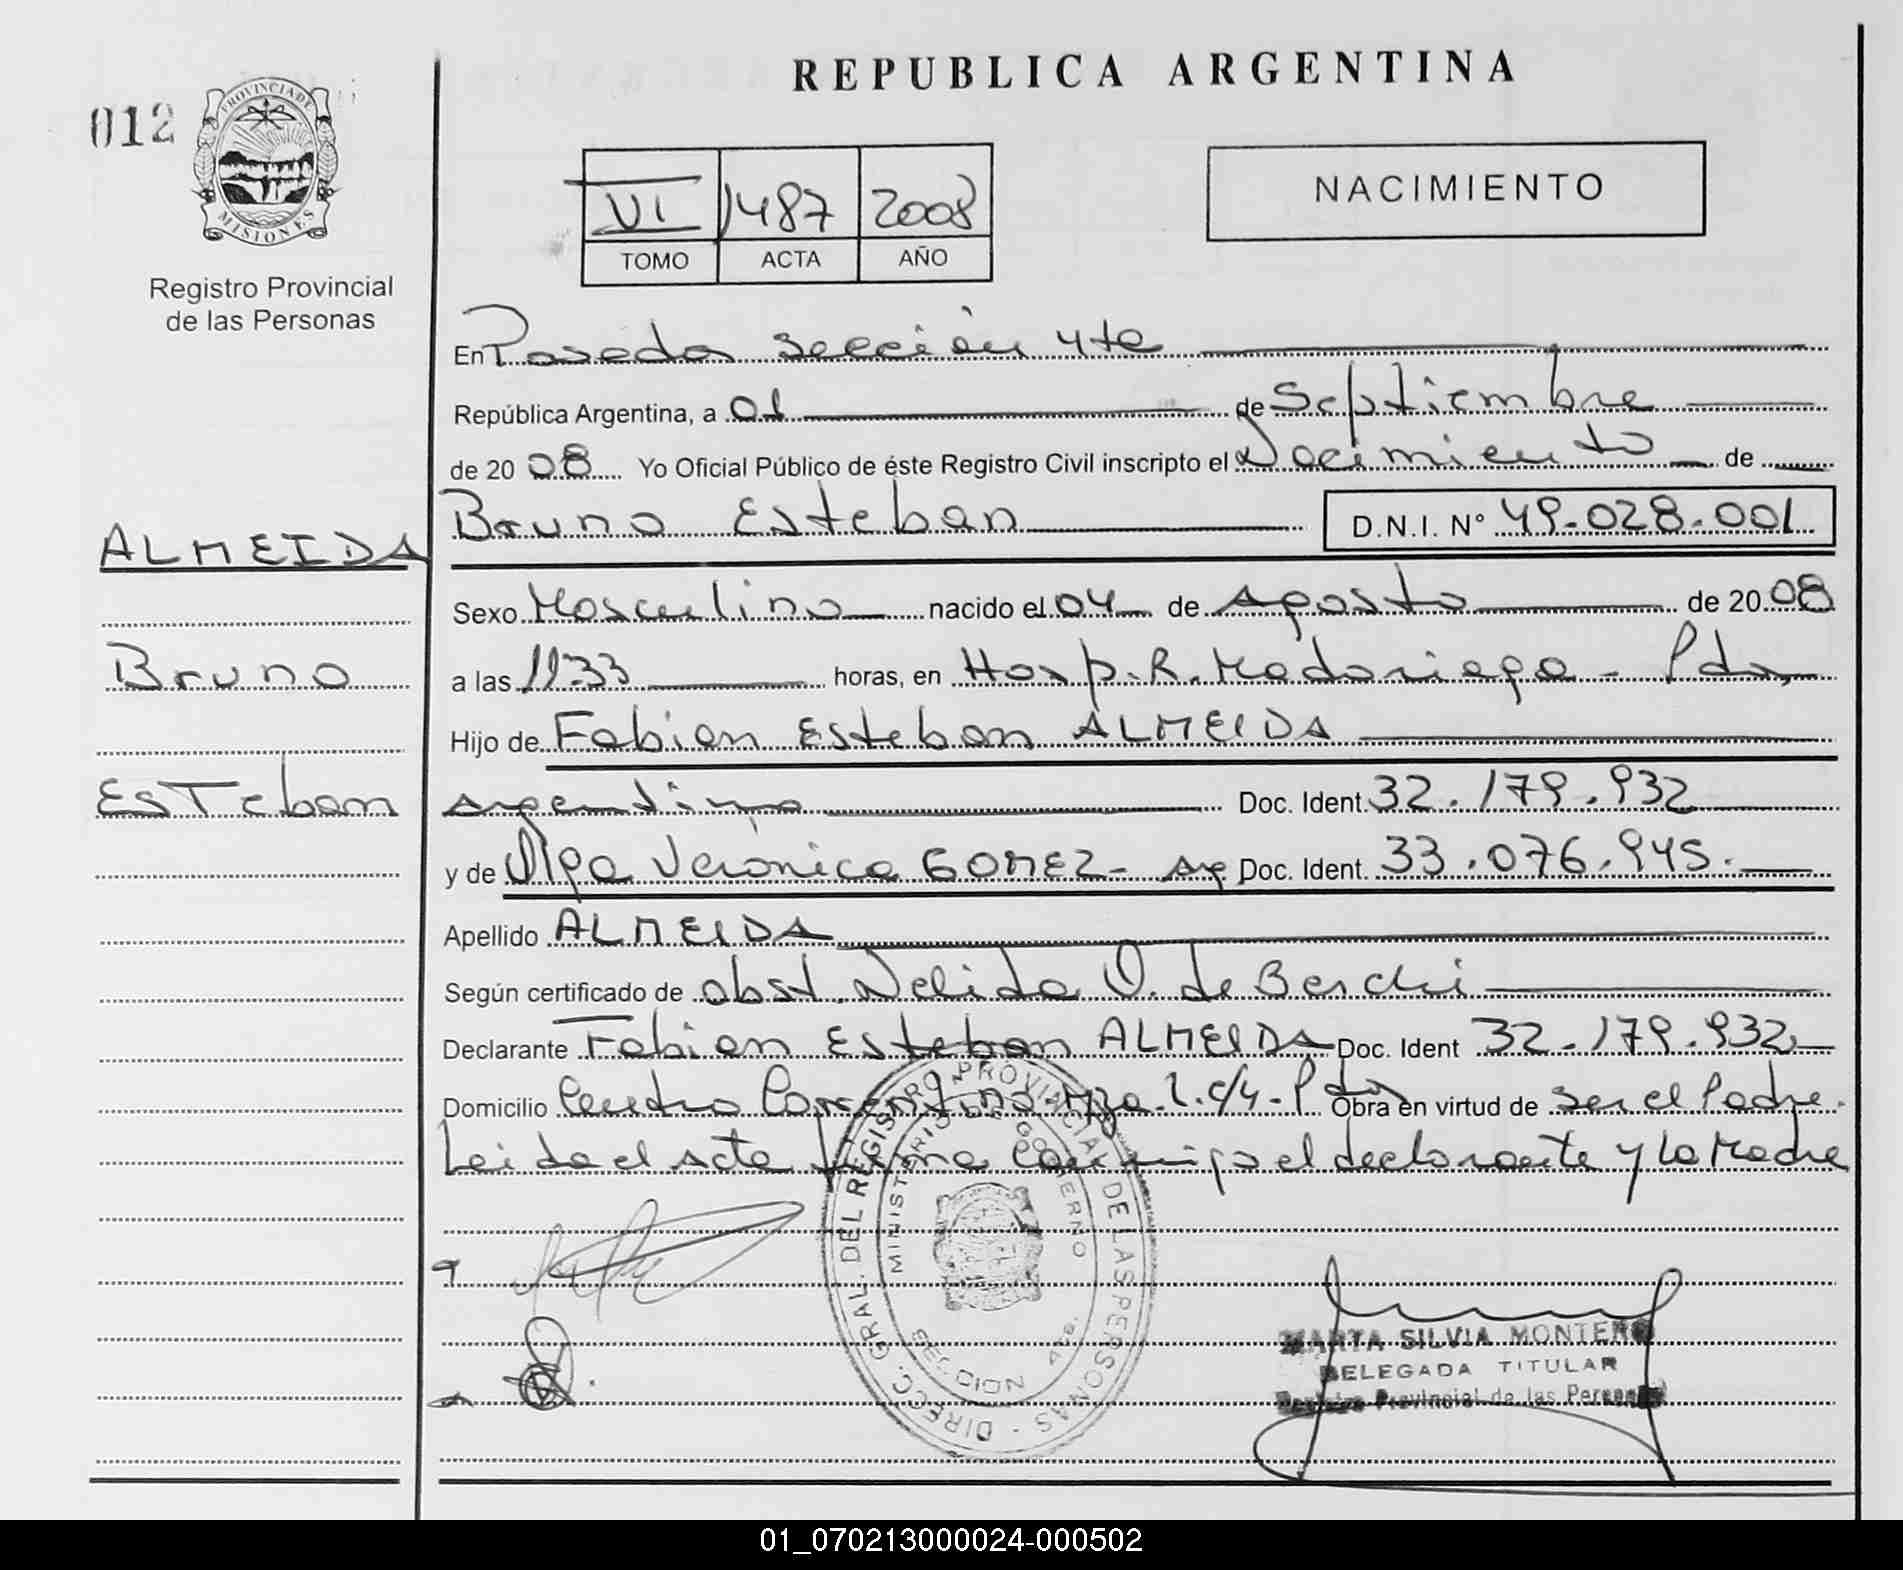 REPUBLICA ARGENTINA
012
PROVINCIA DE
MISIONES
Registro Provincial
de las Personas
VI 1487 2008
TOMO ACTA AÑO
NACIMIENTO
En Posadas sección 4ta
República Argentina, a 01 de Septiembre
de 2008 Yo Oficial Público de éste Registro Civil inscripto el Nacimiento de
Bruno Esteban D.N.I. N° 49.028.001
ALMEIDA
Bruno
Esteban
Sexo Masculino nacido el 04 de Agosto de 2008
a las 11:33 horas, en Hosp. R. Madariaga - Pdas
Hijo de Fabian Esteban ALMEIDA
argentino Doc. Ident. 32.179.932
y de Olga Verónica GOMEZ - Arg Doc. Ident. 33.076.945.
Apellido ALMEIDA
Según certificado de obst. Nelida O. de Berchi
Declarante Fabian Esteban ALMEIDA Doc. Ident 32.179.932
Domicilio Centro Mza. c/4 - Pdas Obra en virtud de ser el Padre.
Leida el acta firma conmigo el declarante y la Madre
DIRECC. GRAL. DEL REGISTRO PROVINCIAL DE LAS PERSONAS
MINISTERIO DE GOBIERNO
MARTA SILVIA MONTERO
DELEGADA TITULAR
Registro Provincial de las Personas
01_070213000024-000502